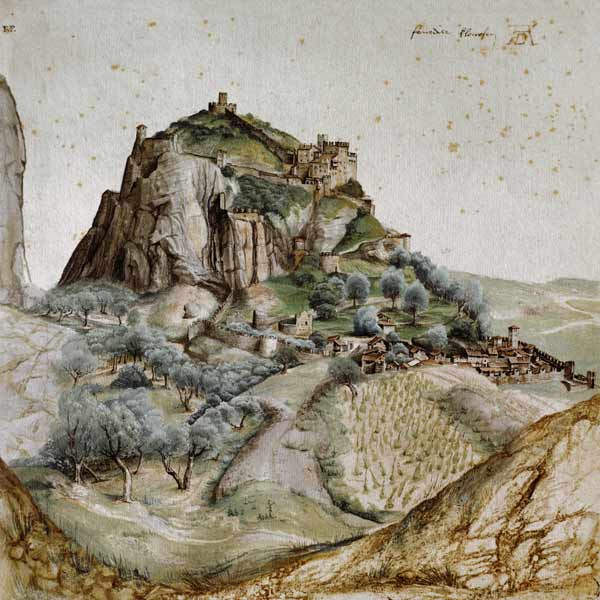 fenedier klawsen AD